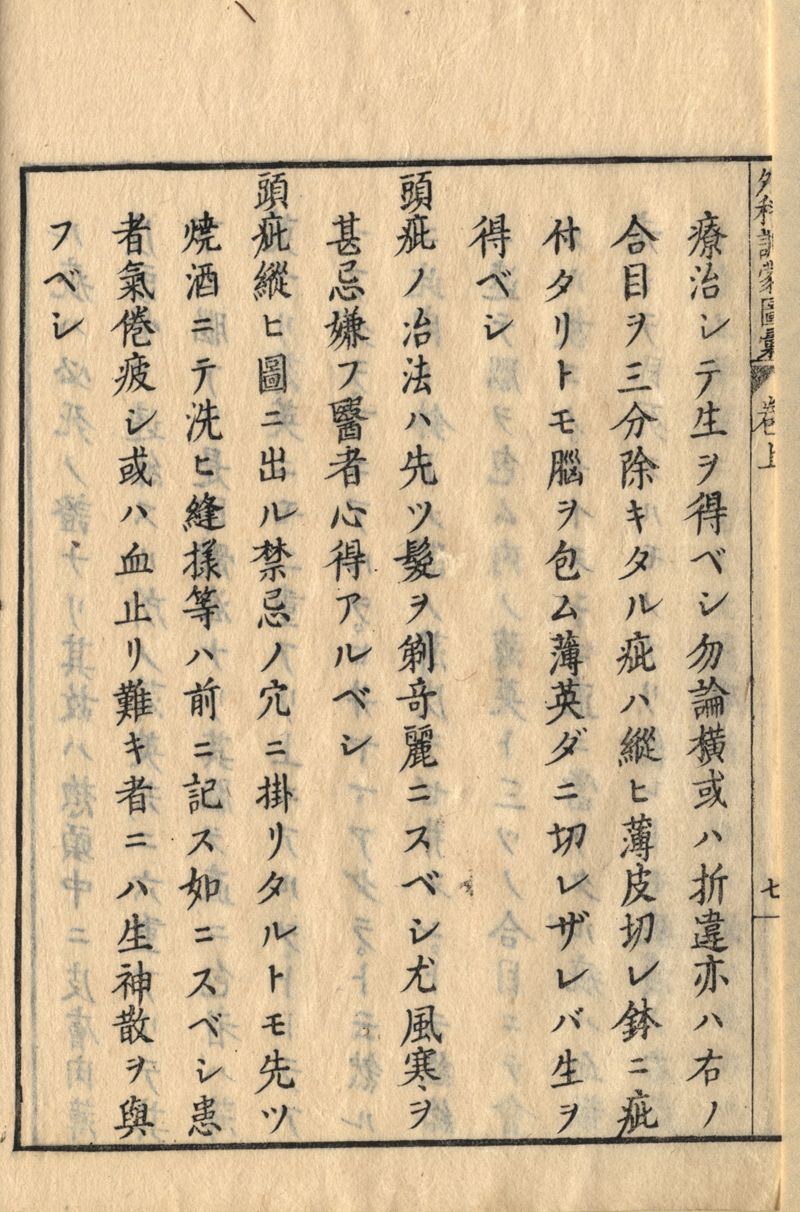 外科訓蒙圖彙 卷上 七
療治シテ生ヲ得ベシ勿論橫或ハ折違亦ハ右ノ
合目ヲ三分除キタル疵ハ縱ヒ薄皮切レ鉢ニ疵
付タリトモ腦ヲ包ム薄英ダニ切レザレバ生ヲ
得ベシ
頭疵ノ冶法ハ先ツ髮ヲ剃竒麗ニスベシ尤風寒ヲ
甚忌嫌フ醫者心得アルベシ
頭疵縱ヒ圖ニ出ル禁忌ノ穴ニ掛リタルトモ先ツ
焼酒ニテ洗ヒ縫様等ハ前ニ記ス如ニスベシ患
者氣倦疲シ或ハ血止リ難キ者ニハ生神散ヲ與
フベシ